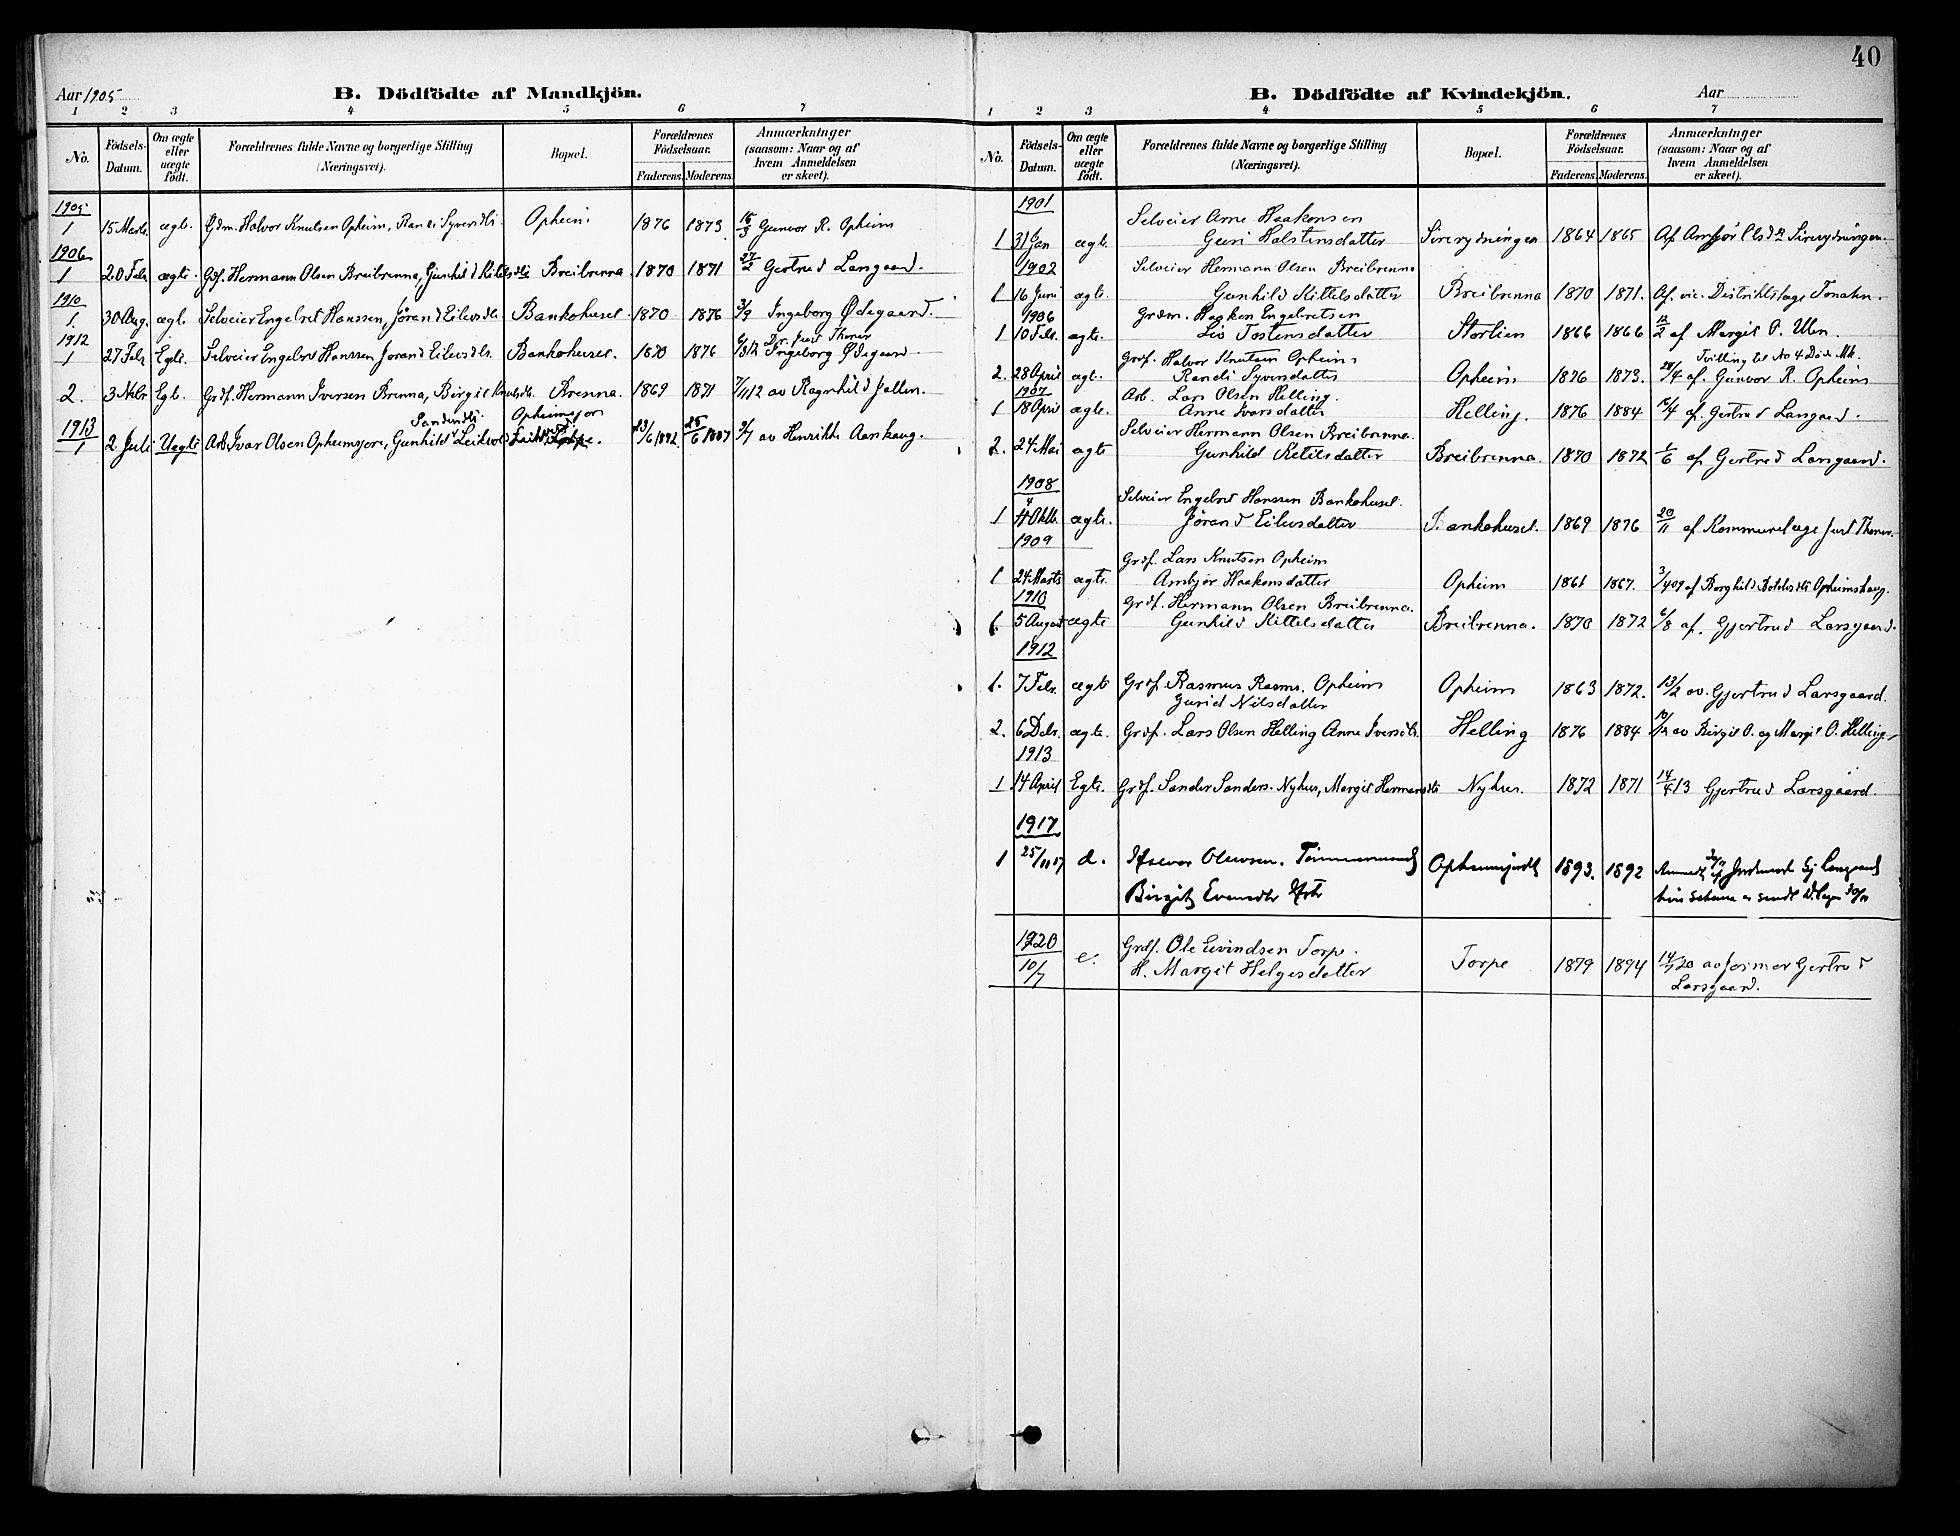 Aar 1905
B. Dödfödte af Mandkjön.
1 2 3 4 5 6 7
No. Födsels-Datum. Om ægte eller uægte födt. Forældrenes fulde Navne og borgerlige Stilling (Næringsvei). Bopæl. Forældrenes Födselsaar. Faderens. Moderens. Anmærkninger (saasom: Naar og af hvem Anmeldelsen er skeet).
1905
1 15 Marts. ægte. Gdm. Halvor Knutsen Opheim, Randi Syversdtr. Opheim 1876 1873. 15/3 Gunvor R. Opheim
1906
1 20 Febr. ægte. Grdf. Hermann Olsen Breibrenna, Gunhild Kittelsdtr. Breibrenna. 1870 1871 27/2 Gertrud Larsgaard.
1910
1. 30 Aug. ægt. Selveier Engebret Hanssen, Jörand Eilevsdtr. Bankohuset. 1870 1876 3/9 Ingeborg Ødegaard.
1912
Dr. Just Thoner
1 27 Febr. Egte. Selveier Engebret Hanssen Jorand Eilevsdtr. Bankohuset. 1870 1876 Ingeborg Ødegaard.
2. 3 Nvbr Egt. Grdf. Hermann Iversen Brenna, Birgit Knutsdtr. Brenna. 1869 1871 7/11 12 av Ragnhild Jallen.
1913
Sandersdtr. Opheimsjor
1 2 Juli Uegte Arb. Ivar Olsen Opheimsjore, Gunhild Leikvold 23/6 1892. 25/6 1887 3/7 av Henrikke Aankaug.
40
B. Dödfödte af Kvindekjön.
Aar
1 2 3 4 5 6 7
No. Födsels-Datum. Om ægte eller uægte födt. Forældrenes fulde Navne og borgerlige Stilling (Næringsvei). Bopæl. Forældrenes Födselsaar. Faderens. Moderens. Anmærkninger (saasom: Naar og af hvem Anmeldelsen er skeet).
1901
Selveier Arne Haakonsen
1 31 Jan ægt. Guri Halstensdatter Sirerydningen 1864 1865 Af Ambjør Olsdtr Sirerydningen.
1902
Selveier Hermann Olsen Breibrenna
1 16 Juni ægte. Gunhild Kittelsdatter Breibrenna 1870 1871. Af vic. Distriktslæge Tonahn.
1906
Grdm. Haakon Engebretsen
1 10 Febr. ægte. Liv Tostensdatter Storlien 1866 1866 12/2 af Margit O. Ulen.
Grdf. Halvor Knutsen Opheim Tvilling til No 4 Döde Mk.
2. 28 April ægt. Randi Syversdatter Opheim 1876 1873. 28/4 af. Gunvor R. Opheim
1907
Arb. Lars Olsen Helling.
1 18 April ægte. Anne Ivarsdatter Helling. 1876 1884 af. Gertrud Larsgaard.
Selveier Hermann Olsen Breibrenna.
2. 24 Mai ægte Gunhild Ketilsdatter Breibrenna. 1870 1872 1/6 af Gertrud Larsgaard.
1908
Selveier Engebret Hanssen Bankohuset.
4
1 Oktb. ægte. Jörand Eilevsdatter Bankohuset. 1869 1876 20/11 af Kommunelæge Just Thoner.
1909
Grdf. Lars Knutsen Opheim
1 24 Marts ægte. Ambjör Haakonsdatter Opheim 1861 1867. 3/4 09 af Borghild Botolvsdtr Opheimshaug.
1910
Grdf. Hermann Olsen Breibrenna.
1. 5 August ægte Gunhild Kittelsdatter Breibrenna. 1870 1872 6/8 af. Gjertrud Larsgaard.
1912
1. 7 Febr. ægte Grdf. Rasmus Rasms. Opheim Opheim 1863 1872. 13/2 av. Gjertrud Larsgaard.
Gurid Nilsdatter
2. 6 Debr. ægte. Grdf. Lars Olsen Helling Anne Iversdtr. Helling 1876 1884 10/12 av Birgit O. og Margit O. Helling.
1913
1 14 April Egte. Grdf. Sander Sanders. Nyhus, Margit Hermansdtr Nyhus. 1872 1871 14/4 13 Gjertrud Larsgaard.
1917
1 25/11 17 Olewsen. 1893. 1892 Larsgaard
Birgit Evensdtr
1920
Grdf. Ole Eivindsen Torpe.
10/7 e. H. Margit Helgesdatter Torpe 1879 1894 14/7 20 av jormor Gertrud
Larsgaard.